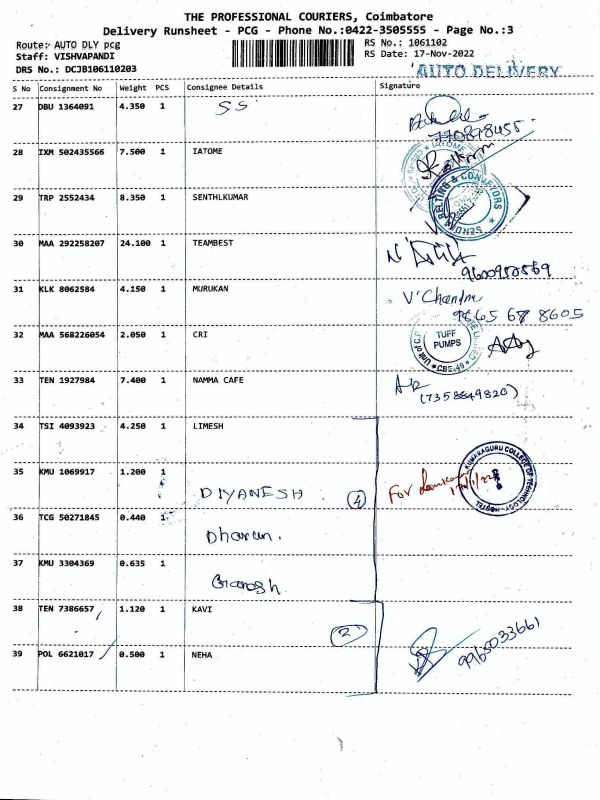 THE PROFESSIONAL COURIERS, Coimbatore
Delivery Runsheet - PCG - Phone No.:0422-3505555 - Page No.:3
Route: AUTO DLY pcg
Staff: VISHVAPANDI
DRS No.: DCJB106110203
RS No.: 1061102
RS Date: 17-Nov-2022
AUTO DELIVERY
S No Consignment No Weight PCS Consignee Details Signature
27 DBU 1364091 4.350 1 SS
28 IXM 502435566 7.500 1 IATOME
29 TRP 2552434 8.350 1 SENTHLKUMAR
BELTING & CONVEYORS
30 MAA 292258207 24.100 1 TEAMBEST
31 KLK 8062584 4.150 1 MURUKAN V. Chandru
9865 68 8605
32 MAA 568226054 2.050 1 CRI
TUFF
PUMPS
CBE-49
33 TEN 1927984 7.400 1 NAMMA CAFE
(7358849820)
34 TSI 4093923 4.250 1 LIMESH
35 KMU 1069917 1.200 1 DIYANESH 4 For
KUMARAGURU COLLEGE OF TECHNOLOGY HOSTEL
36 TCG 50271845 0.440 1 Dharun.
37 KMU 3304369 0.635 1 Ganesh
38 TEN 7386657 1.120 1 KAVI
2
9965033661
39 POL 6621017 0.500 1 NEHA